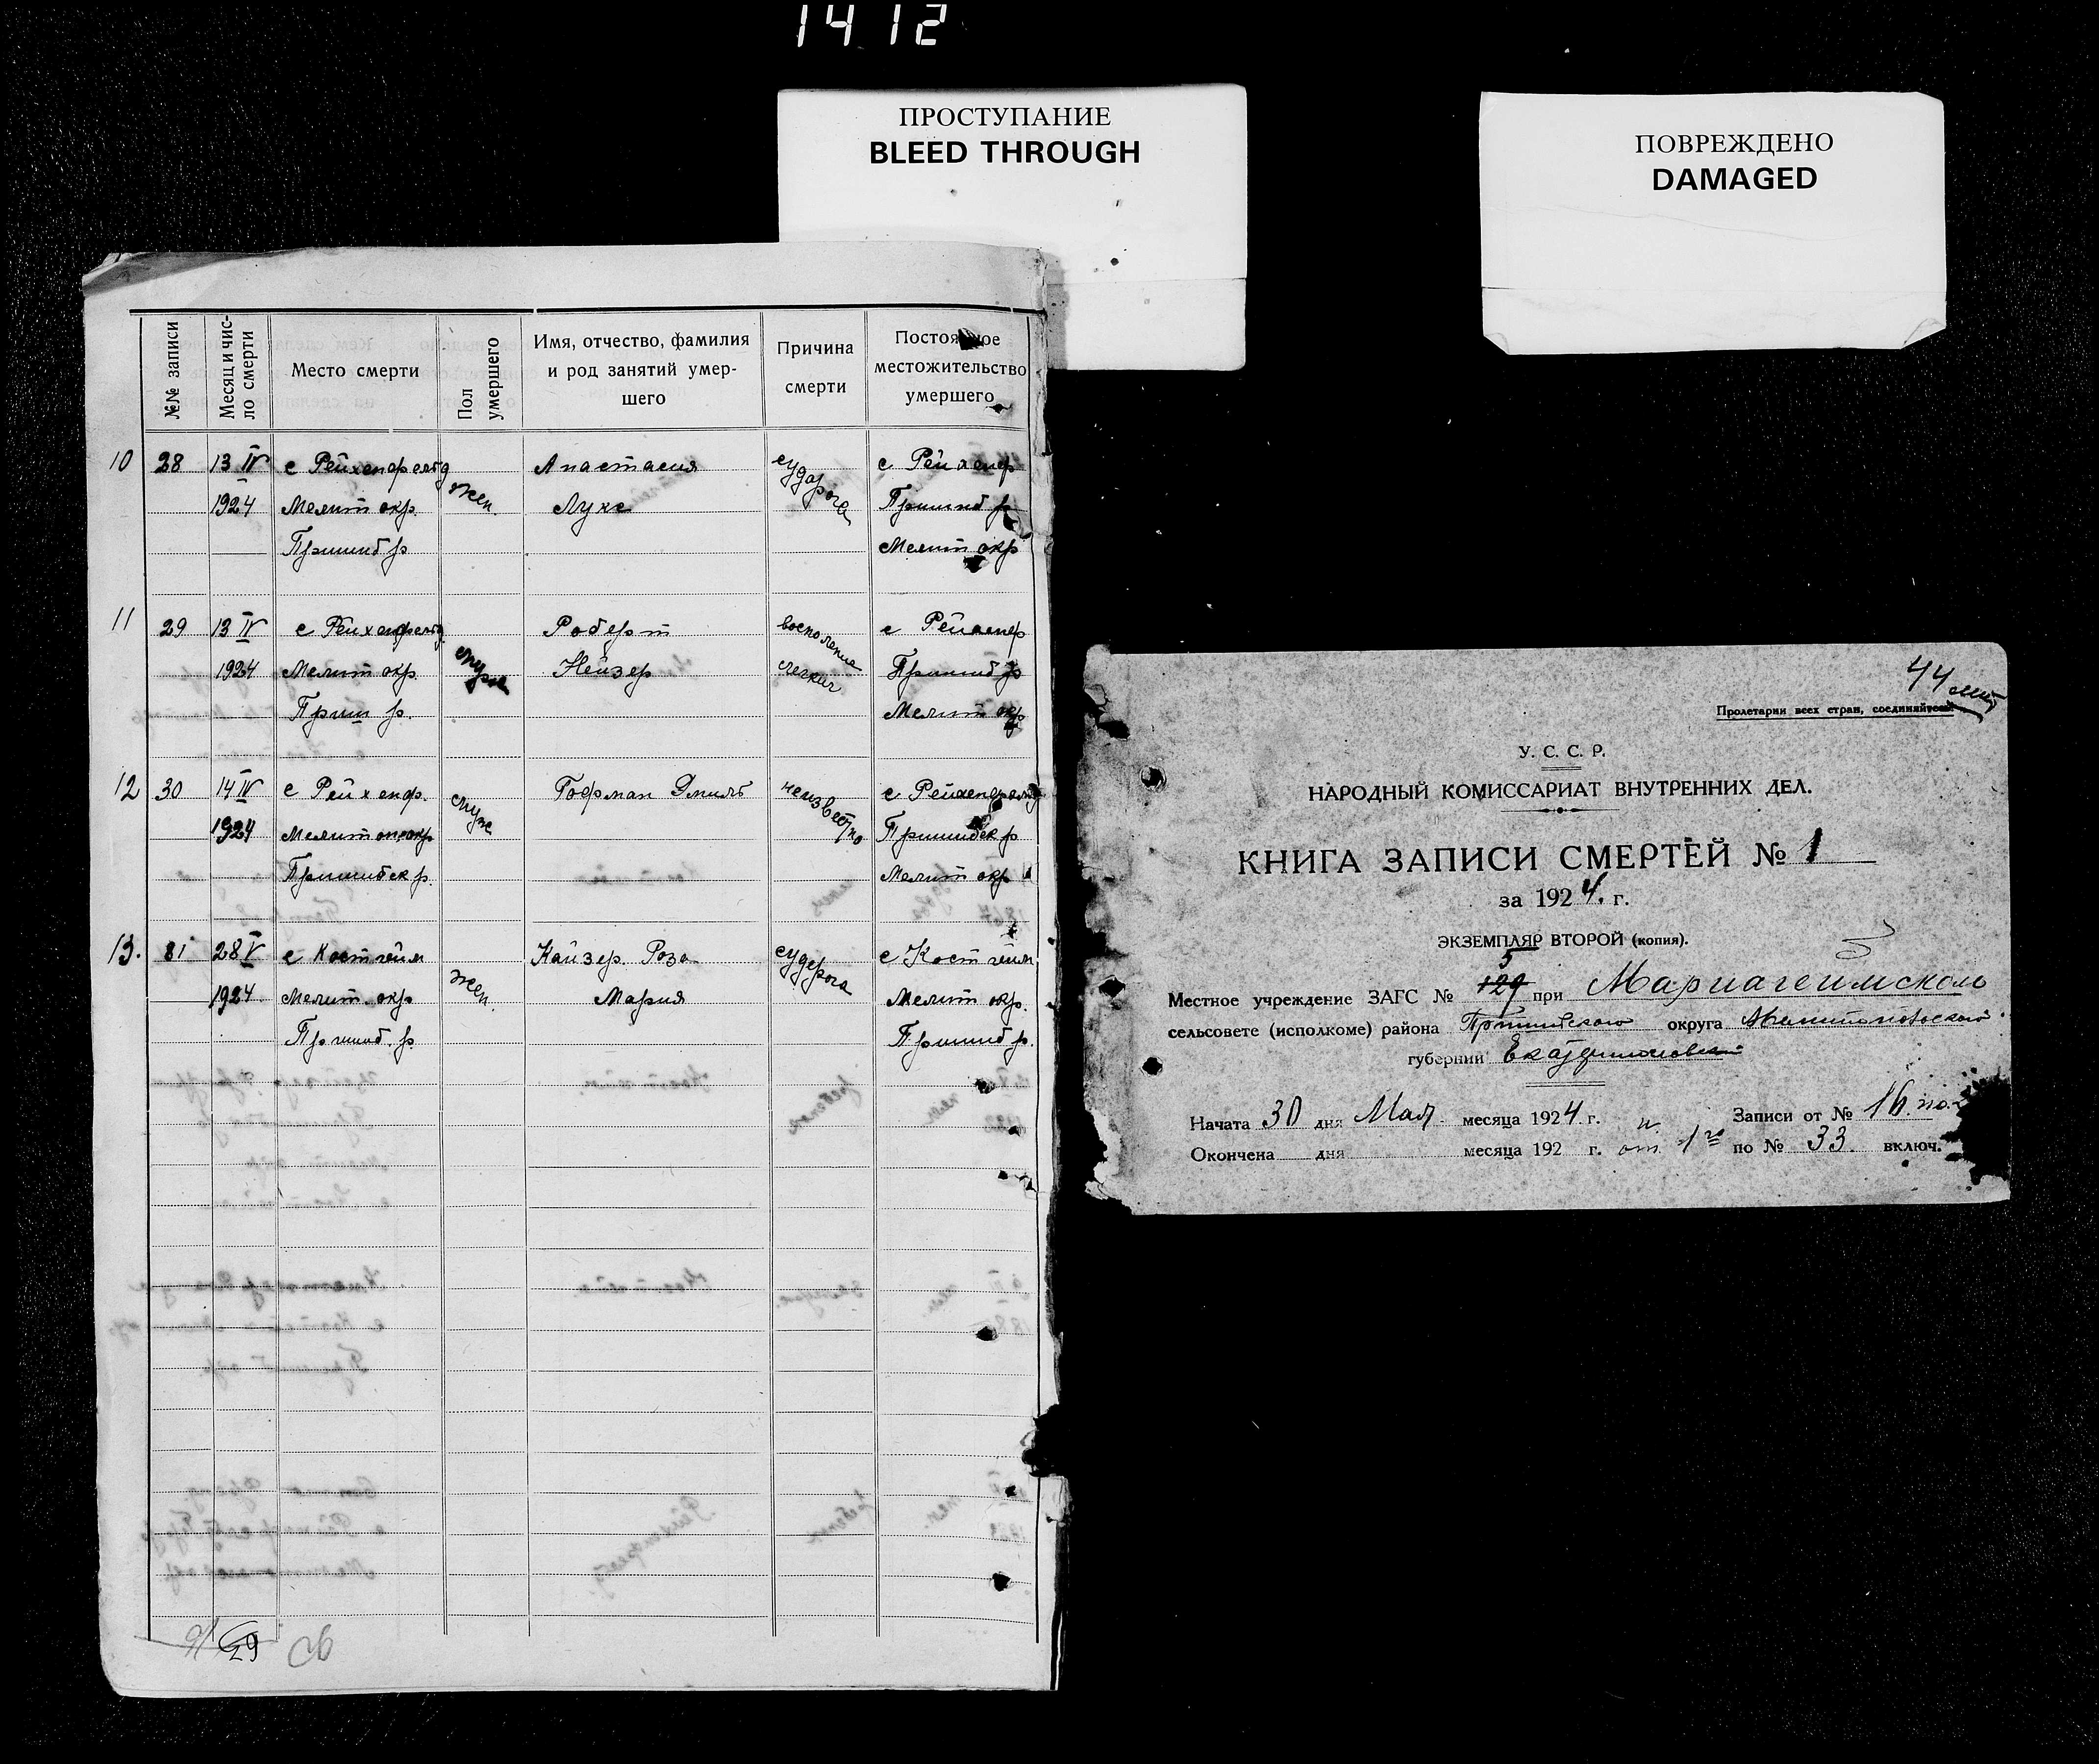 1412
ПРОСТУПАНИЕ
BLEED THROUGH
ПОВРЕЖДЕНО
DAMAGED
№№ записи
Месяц и чис-
ло смерти
Место смерти
Пол
умершего
Имя, отчество, фамилия
и род занятий умер-
шего
Причина
смерти
Постоянное
местожительство
умершего
10 28 13 IV с Рейхенфельд жен. Анастасия судорога с Рейхенф
1924 Мелит окр. Лукс Пришиб р
Пришиб р Мелит окр
11 29 13 IV с Рейхенфельд муж Роберт восполение с Рейхенф
1924 Мелит окр. Нейзер легких Пришиб р
Приш р. Мелит окр
12 30 14 IV с Рейхенф. муж Гофман Эмиль неизвестно с Рейхенфельд
1924 Мелитоп окр Пришибск р
Пришибск р. Мелит окр
13. 31 28 V с Костгейм жен. Кайзер Роза судерога с Костгейм
1924 Мелит. окр Мария Мелит окр.
Пришиб. р. Пришиб р.
29
44
Пролетарии всех стран, соединяйтесь!
У. С. С. Р.
НАРОДНЫЙ КОМИССАРИАТ ВНУТРЕННИХ ДЕЛ.
КНИГА ЗАПИСИ СМЕРТЕЙ № 1
за 1924. г.
ЭКЗЕМПЛЯР ВТОРОЙ (копия).
5
Местное учреждение ЗАГС № 129 при Мариагеймском
сельсовете (исполкоме) района Пришибского округа Мелитопольской
губернии Екатеринославской
Начата 30 дня Мая месяца 1924 г. Записи от № 16 по
Окончена дня месяца 192 г. от 1 го по № 33. включ.